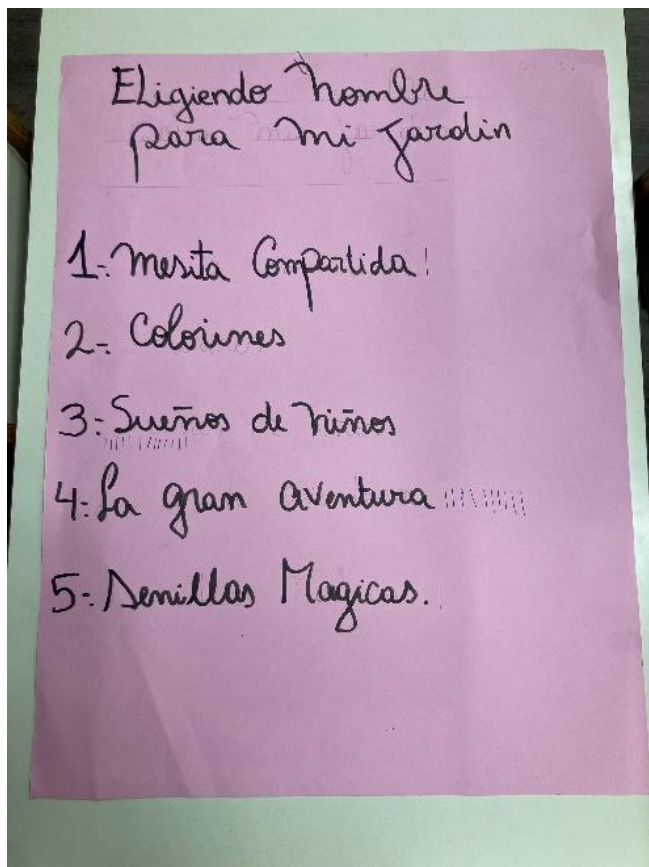 Eligiendo nombre
para mi Jardin
1-. Mesita Compartida!
2-. Colorines
3-. Sueños de niños
4-. La gran aventura
5-. Semillas Magicas.